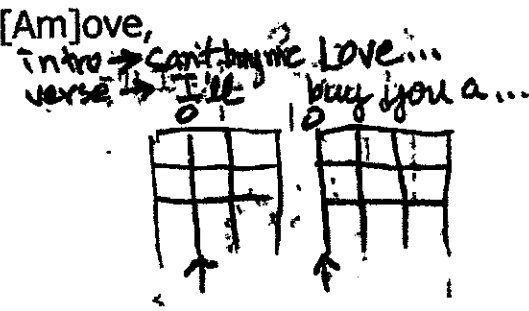 [Am]ove,
intro → can't buy me Love...
verse → I'll buy you a...
0 0